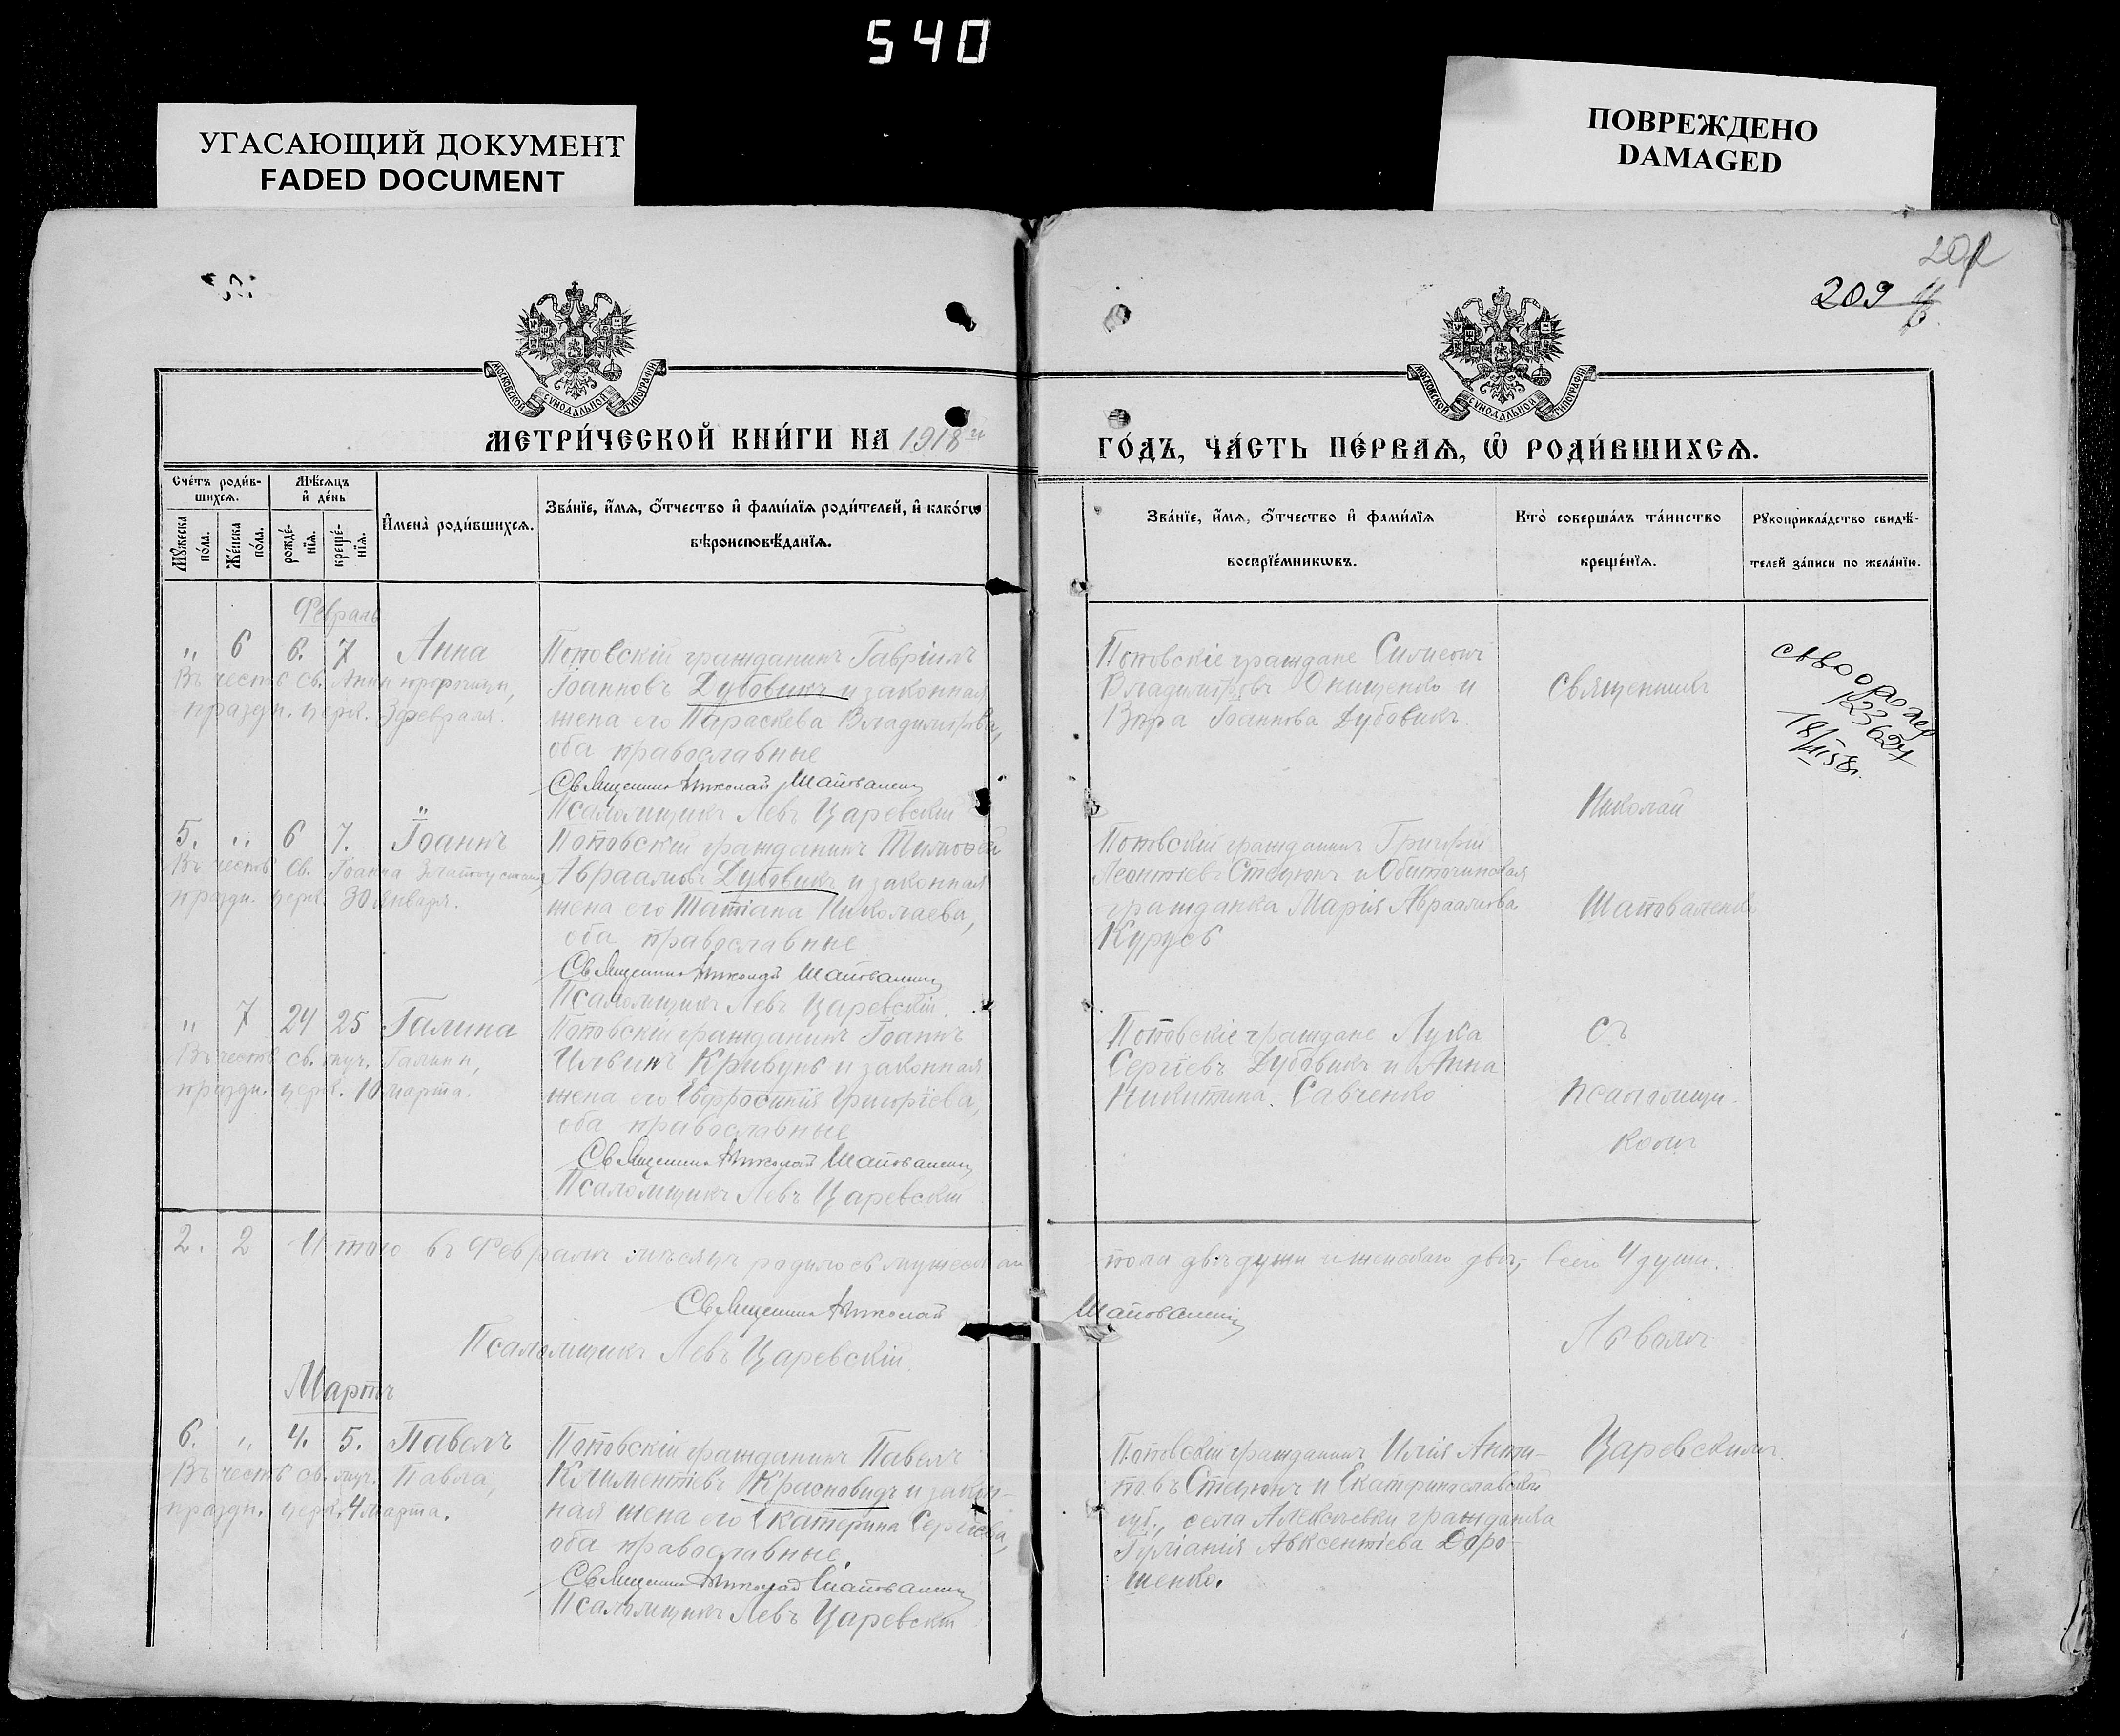 540
УГАСАЮЩИЙ ДОКУМЕНТ
FADED DOCUMENT
ПОВРЕЖДЕНО
DAMAGED
209
МОСКОВСКОЙ СѴНОДАЛЬНОЙ ТИПОГРАФІИ
МОСКОВСКОЙ СѴНОДАЛЬНОЙ ТИПОГРАФІИ
МЕТРИ́ЧЕСКОЙ КНИ́ГИ НА 1918 й
ГО́ДЪ, ЧА́СТЬ ПЕ́РВАѦ, Ѡ҆ РОДИ́ВШИХСѦ.
Сче́тъ роди́в-
шихсѧ.
Мѣ́сѧцъ
и҆ де́нь
Мꙋ́жеска
по́ла.
Же́нска
по́ла.
рожде́-
нїѧ.
креще́-
нїѧ.
И҆мена̀ роди́вшихсѧ.
Зва́нїе, и҆́мѧ, ѻ҆́тчество и҆ фами́лїѧ роди́телей, и҆ како́гѡ
вѣроисповѣ́данїѧ.
Зва́нїе, и҆́мѧ, ѻ҆́тчество и҆ фами́лїѧ
воспрїе́мникѡвъ.
Кто̀ соверша́лъ та́инство
креще́нїѧ.
Рꙋкоприкла́дство свидѣ́-
телей за́писи по жела́нїю.
Февраль
" 6 6. 7 Анна
Въ честь св. Анны пророчицы,
праздн. церк. 3 февраля.
Поповскій гражданинъ Гавріилъ
Іоанновъ Дубовикъ и законная
жена его Параскева Владимірова,
оба православные
Священникъ Николай Шаповаленко
Псаломщикъ Левъ Царевскій
Поповскіе граждане Симеонъ
Владиміровъ Онищенко и
Вѣра Іоаннова Дубовикъ.
Священникъ
св-во о рожд
123627
18/III 58г.
5. " 6 7. Іоаннъ
Въ честь св. Іоанна Златоустаго,
праздн. церк. 30 января.
Поповскій гражданинъ Тимоѳей
Авраамовъ Дубовикъ и законная
жена его Татіана Николаева,
оба православные
Священникъ Николай Шаповаленко
Псаломщикъ Левъ Царевскій.
Поповскій гражданинъ Григорій
Леонтіевъ Стецюкъ и Обиточинская
гражданка Марія Авраамова
Курусь
Николай
Шаповаленко
" 7 24 25 Галина
Въ честь св. муч. Галины,
праздн. церк. 10 марта.
Поповскій гражданинъ Іоаннъ
Ильинъ Кривунь и законная
жена его Евфросинія Григоріева,
оба православные
Священникъ Николай Шаповаленко
Псаломщикъ Левъ Царевскій
Поповскіе граждане Лука
Сергіевъ Дубовикъ и Анна
Никитина Савченко
Съ
псаломщи-
комъ
2. 2 Итого въ Февралѣ мѣсяцѣ родилось мужескаго
пола двѣ души и женскаго двѣ, всего 4 души.
Священникъ Николай Шаповаленко
Псаломщикъ Левъ Царевскій.
Львомъ
Мартъ
6. " 4. 5. Павелъ
Въ честь св. муч. Павла,
праздн. церк. 4 марта.
Поповскій гражданинъ Павелъ
Климентіевъ Красновидъ и закон-
ная жена его Екатерина Сергіева,
оба православные.
Священникъ Николай Шаповаленко
Псаломщикъ Левъ Царевскій
Поповскій гражданинъ Илія Анти-
повъ Стецюкъ и Екатеринославской
губ., села Алексѣевки гражданка
Іуліанія Авксентіева Доро-
шенко.
Царевскимъ.